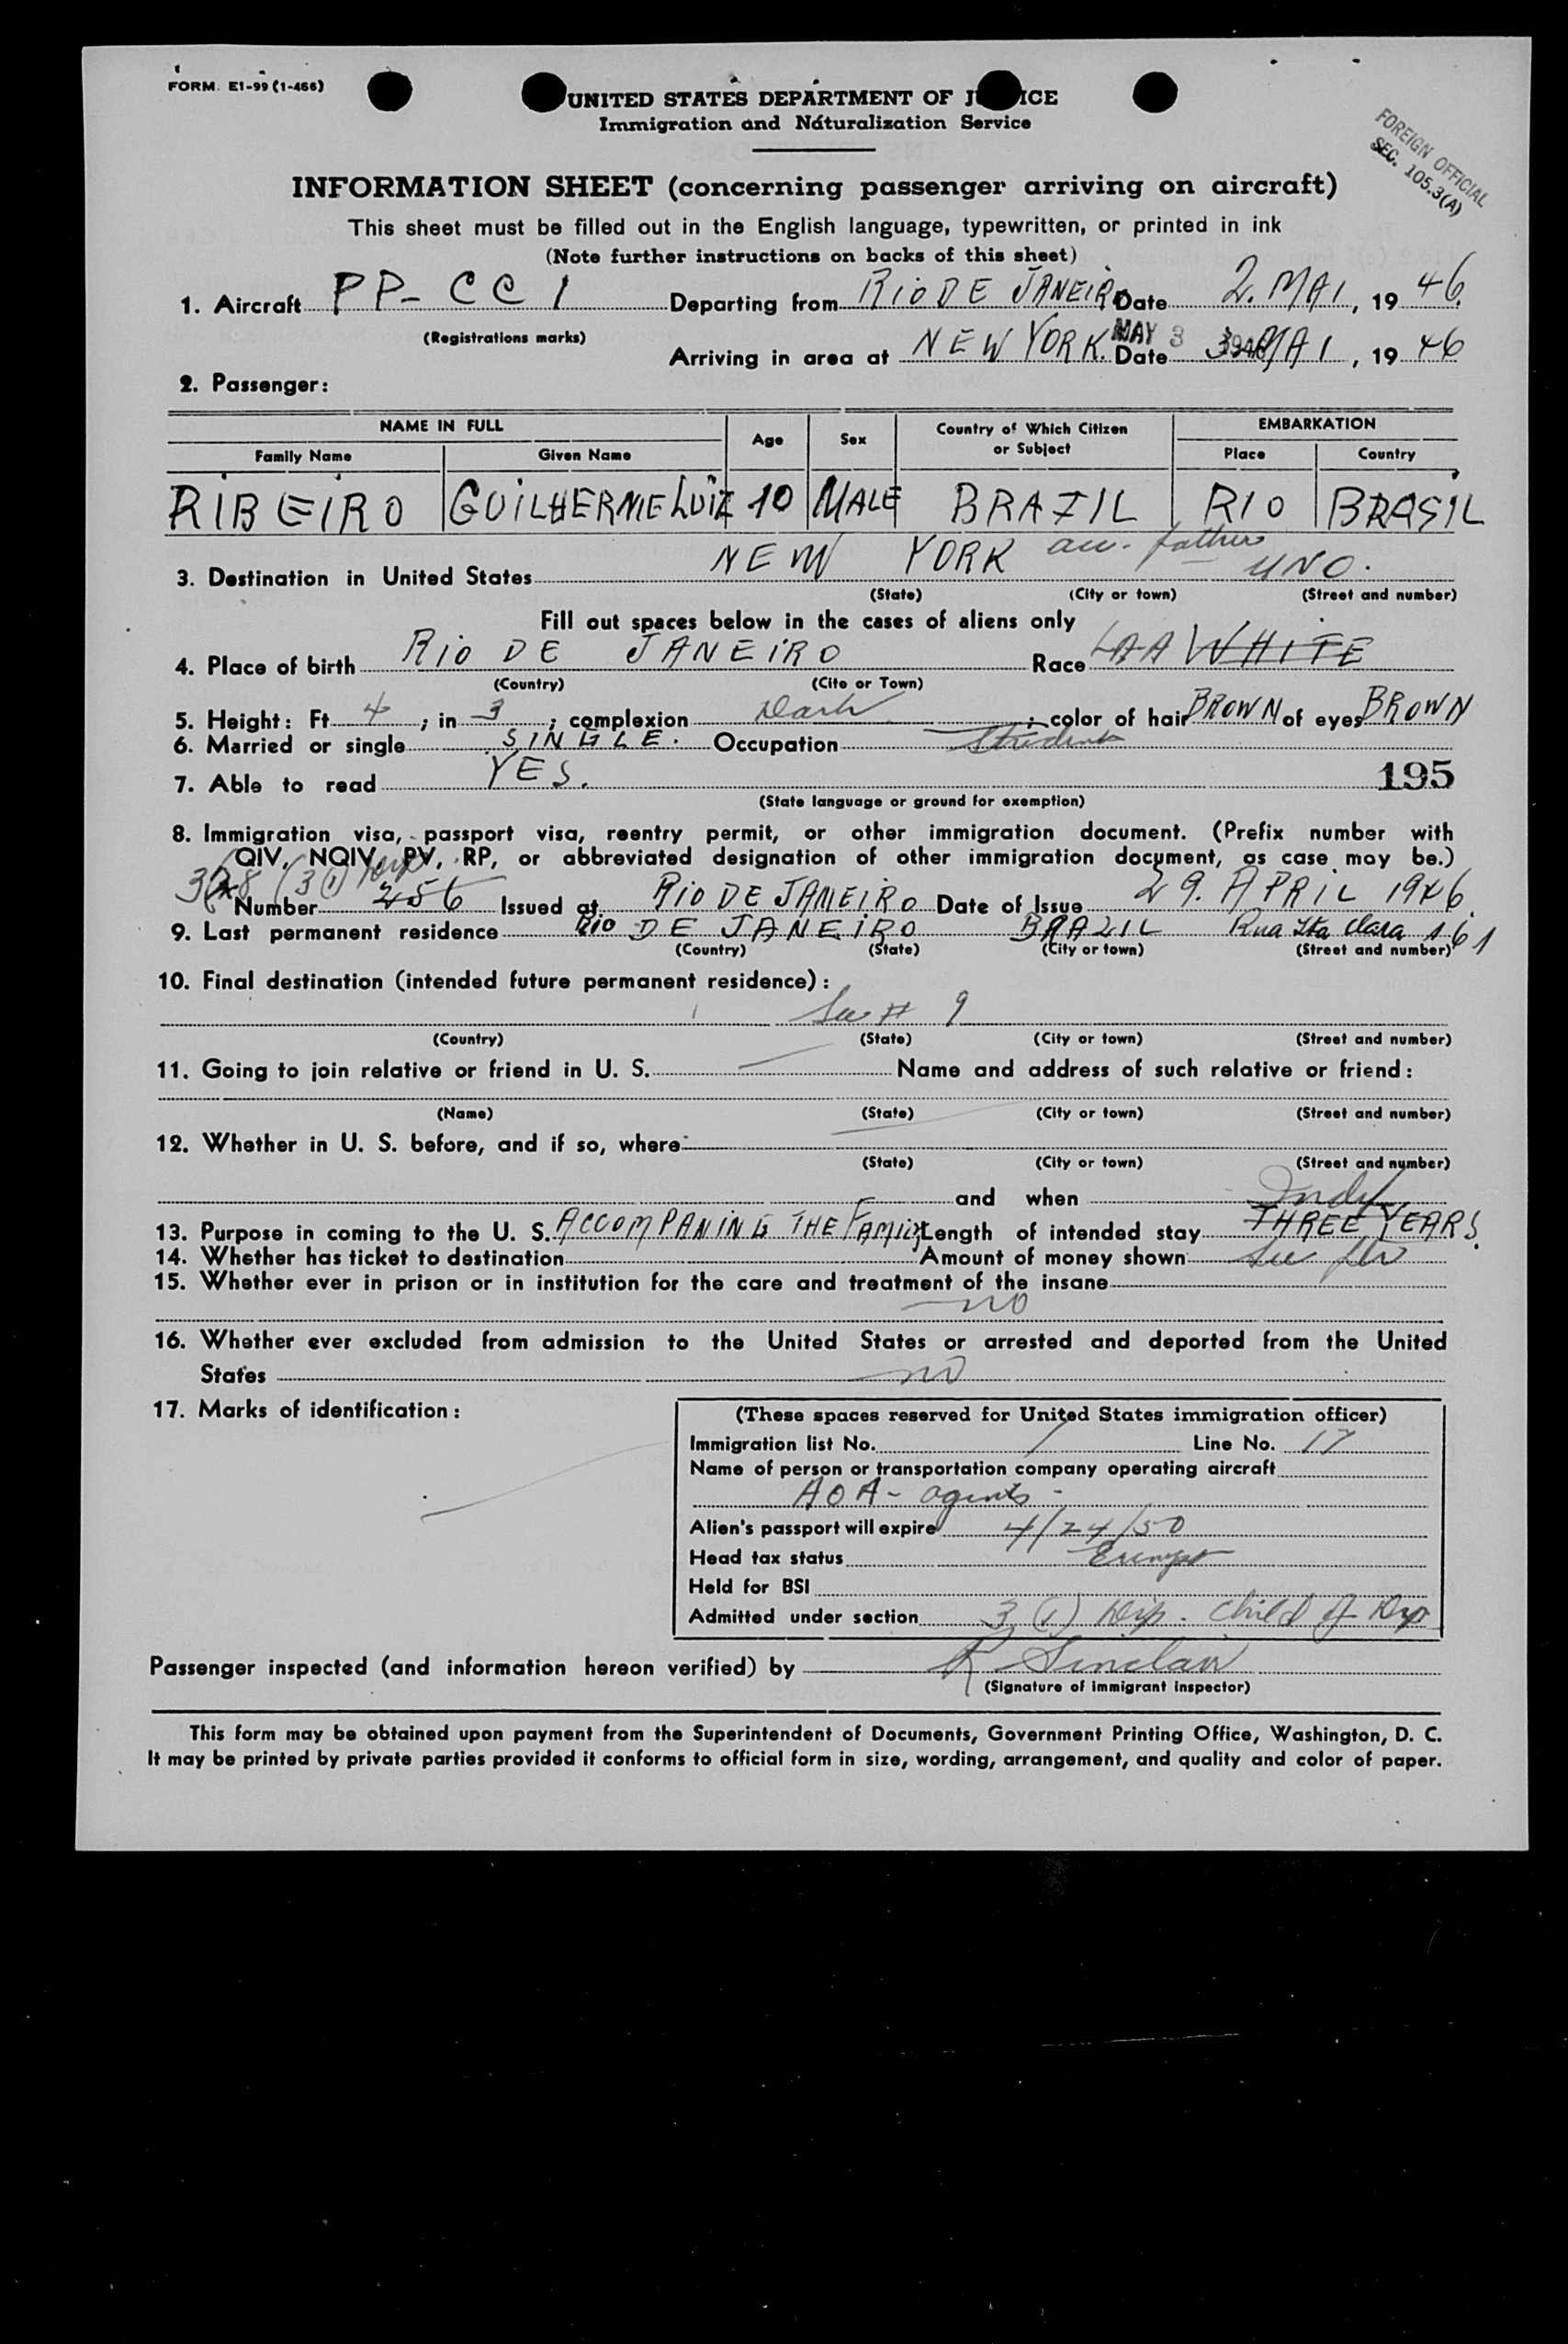 FORM. E1-99 (1-466)
UNITED STATES DEPARTMENT OF J ICE
Immigration and Naturalization Service
FOREIGN OFFICIAL
SEC. 105.3(A)
INFORMATION SHEET (concerning passenger arriving on aircraft)
This sheet must be filled out in the English language, typewritten, or printed in ink
(Note further instructions on backs of this sheet)
1. Aircraft PP-CC1 Departing from RIO DE JANEIRO Date 2. MAI, 19 46.
(Registrations marks)
Arriving in area at NEW YORK. Date MAY 3 1946 3 MAI, 19 46
2. Passenger:
NAME IN FULL Age Sex Country of Which Citizen or Subject EMBARKATION
Family Name Given Name Place Country
RIBEIRO GUILHERME LUIZ 10 MALE BRAZIL RIO BRASIL
3. Destination in United States NEW YORK acc. father UNO.
(State) (City or town) (Street and number)
Fill out spaces below in the cases of aliens only
4. Place of birth RIO DE JANEIRO Race WHITE
(Country) (Cite or Town)
5. Height: Ft 4; in 3; complexion Dark; color of hair BROWN of eyes BROWN
6. Married or single SINGLE. Occupation Student
7. Able to read YES. 195
(State language or ground for exemption)
8. Immigration visa, passport visa, reentry permit, or other immigration document. (Prefix number with
QIV, NQIV, PV, RP, or abbreviated designation of other immigration document, as case may be.)
3(1) Dip
Number 256 Issued at RIO DE JANEIRO Date of Issue 29. APRIL 1946.
9. Last permanent residence RIO DE JANEIRO BRAZIL Rua Sta Clara 161
(Country) (State) (City or town) (Street and number)
10. Final destination (intended future permanent residence):
See # 9
(Country) (State) (City or town) (Street and number)
11. Going to join relative or friend in U. S. — Name and address of such relative or friend:
(Name) (State) (City or town) (Street and number)
12. Whether in U. S. before, and if so, where:
(State) (City or town) (Street and number)
and when
Indef
13. Purpose in coming to the U. S. ACCOMPANING THE FAMILY Length of intended stay THREE YEARS.
14. Whether has ticket to destination Amount of money shown see
15. Whether ever in prison or in institution for the care and treatment of the insane
no
16. Whether ever excluded from admission to the United States or arrested and deported from the United
States no
17. Marks of identification:
(These spaces reserved for United States immigration officer)
Immigration list No. 1 Line No. 17
Name of person or transportation company operating aircraft
AOA - agents -
Alien's passport will expire 4/24/50
Head tax status Exempt
Held for BSI
Admitted under section 3 (1) Dip. Child of Dip
Passenger inspected (and information hereon verified) by R Sinclair
(Signature of immigrant inspector)
This form may be obtained upon payment from the Superintendent of Documents, Government Printing Office, Washington, D. C.
It may be printed by private parties provided it conforms to official form in size, wording, arrangement, and quality and color of paper.